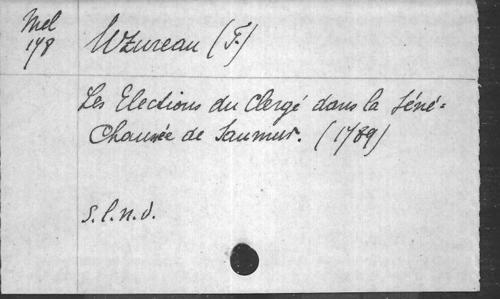 Mel
148
Uzureau (F.)
Les Elections du Clergé dans la Séné-
Chaussée de Saumur. (1789)
s.l.n.d.